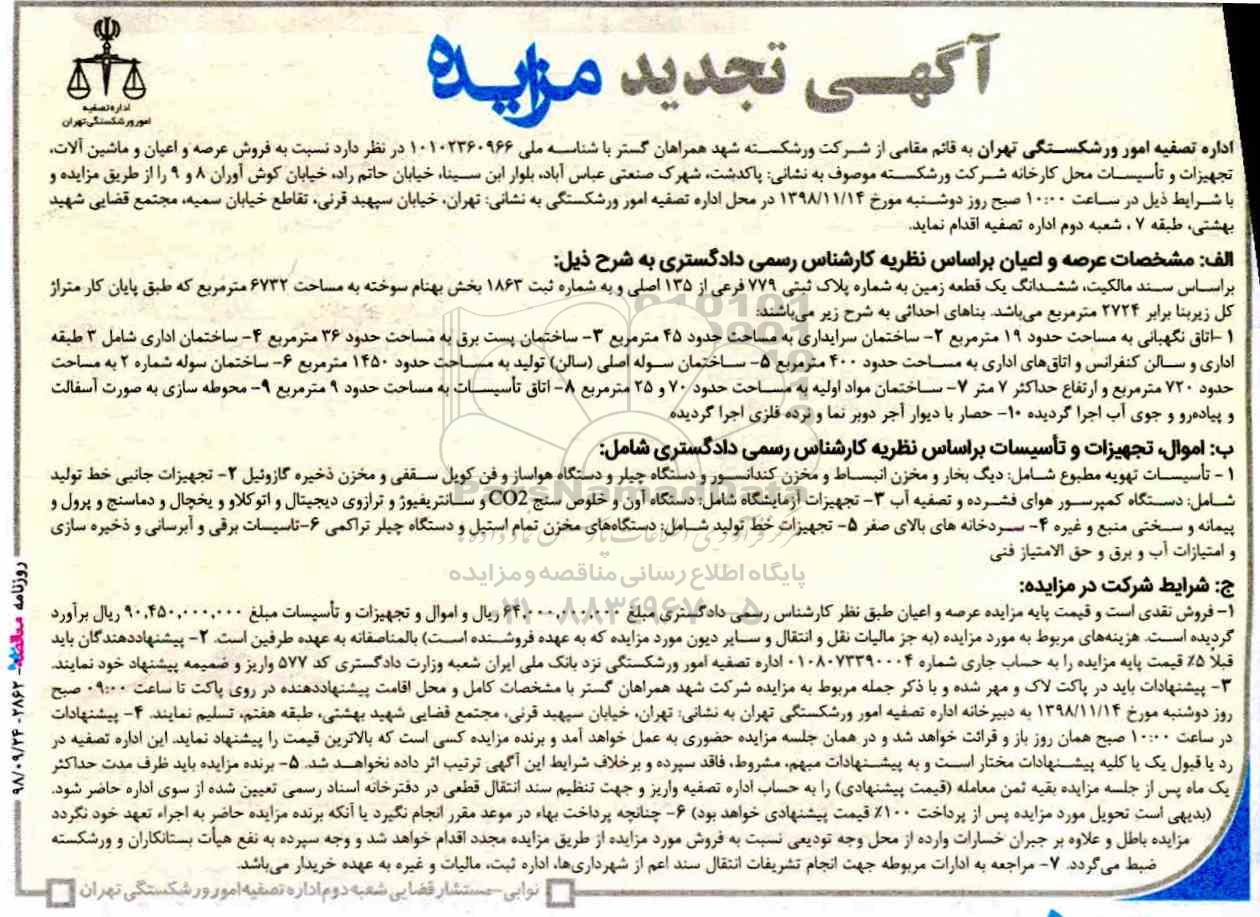 آگهی تجدید مزایده
اداره تصفیه
امور ورشکستگی تهران
اداره تصفیه امور ورشکستگی تهران به قائم مقامی از شرکت ورشکسته شهد همراهان گستر با شناسه ملی ۱۰۱۰۲۳۶۰۹۶۶ در نظر دارد نسبت به فروش عرصه و اعیان و ماشین آلات،
تجهیزات و تأسیسات محل کارخانه شرکت ورشکسته موصوف به نشانی: پاکدشت، شهرک صنعتی عباس آباد، بلوار ابن سینا، خیابان حاتم راد، خیابان کوش آوران ۸ و ۹ را از طریق مزایده و
با شرایط ذیل در ساعت ۱۰:۰۰ صبح روز دوشنبه مورخ ۱۳۹۸/۱۱/۱۴ در محل اداره تصفیه امور ورشکستگی به نشانی: تهران، خیابان سپهبد قرنی، تقاطع خیابان سمیه، مجتمع قضایی شهید
بهشتی، طبقه ۷ ، شعبه دوم اداره تصفیه اقدام نماید.
الف: مشخصات عرصه و اعیان براساس نظریه کارشناس رسمی دادگستری به شرح ذیل:
براساس سند مالکیت، ششدانگ یک قطعه زمین به شماره پلاک ثبتی ۷۷۹ فرعی از ۱۳۵ اصلی و به شماره ثبت ۱۸۶۳ بخش بهنام سوخته به مساحت ۶۷۳۲ مترمربع که طبق پایان کار متراژ
کل زیربنا برابر ۲۷۲۴ مترمربع می‌باشد. بناهای احداثی به شرح زیر می‌باشند:
۱ -اتاق نگهبانی به مساحت حدود ۱۹ مترمربع ۲- ساختمان سرایداری به مساحت حدود ۴۵ مترمربع ۳- ساختمان پست برق به مساحت حدود ۳۶ مترمربع ۴- ساختمان اداری شامل ۳ طبقه
اداری و سالن کنفرانس و اتاق‌های اداری به مساحت حدود ۴۰۰ مترمربع ۵- ساختمان سوله اصلی (سالن) تولید به مساحت حدود ۱۴۵۰ مترمربع ۶- ساختمان سوله شماره ۲ به مساحت
حدود ۷۲۰ مترمربع و ارتفاع حداکثر ۷ متر ۷- ساختمان مواد اولیه به مساحت حدود ۷۰ و ۲۵ مترمربع ۸- اتاق تأسیسات به مساحت حدود ۹ مترمربع ۹- محوطه سازی به صورت آسفالت
و پیاده‌رو و جوی آب اجرا گردیده ۱۰- حصار با دیوار آجر دوبر نما و نرده فلزی اجرا گردیده
ب: اموال، تجهیزات و تأسیسات براساس نظریه کارشناس رسمی دادگستری شامل:
۱ - تأسیسات تهویه مطبوع شامل: دیگ بخار و مخزن انبساط و مخزن کندانسور و دستگاه چیلر و دستگاه هواساز و فن کویل سقفی و مخزن ذخیره گازوئیل ۲- تجهیزات جانبی خط تولید
شامل: دستگاه کمپرسور هوای فشرده و تصفیه آب ۳- تجهیزات آزمایشگاه شامل: دستگاه آون و خلوص سنج CO2 و سانتریفیوژ و ترازوی دیجیتال و اتوکلاو و یخچال و دماسنج و پرول و
پیمانه و سختی منبع و غیره ۴- سردخانه های بالای صفر ۵- تجهیزات خط تولید شامل: دستگاه‌های مخزن تمام استیل و دستگاه چیلر تراکمی ۶-تاسیسات برقی و آبرسانی و ذخیره سازی
و امتیازات آب و برق و حق الامتیاز فنی
پایگاه اطلاع رسانی مناقصه و مزایده
۰۲۱-۸۸۳۴۹۶۷۰-۵
ج: شرایط شرکت در مزایده:
۱- فروش نقدی است و قیمت پایه مزایده عرصه و اعیان طبق نظر کارشناس رسمی دادگستری مبلغ ۶۴,۰۰۰,۰۰۰,۰۰۰ ریال و اموال و تجهیزات و تأسیسات مبلغ ۹۰,۴۵۰,۰۰۰,۰۰۰ ریال برآورد
گردیده است. هزینه‌های مربوط به مورد مزایده (به جز مالیات نقل و انتقال و سایر دیون مورد مزایده که به عهده فروشنده است) بالمناصفه به عهده طرفین است. ۲- پیشنهاددهندگان باید
قبلاً ۵٪ قیمت پایه مزایده را به حساب جاری شماره ۰۱۰۸۰۷۳۳۹۰۰۰۴ اداره تصفیه امور ورشکستگی نزد بانک ملی ایران شعبه وزارت دادگستری کد ۵۷۷ واریز و ضمیمه پیشنهاد خود نمایند.
۳- پیشنهادات باید در پاکت لاک و مهر شده و با ذکر جمله مربوط به مزایده شرکت شهد همراهان گستر با مشخصات کامل و محل اقامت پیشنهاددهنده در روی پاکت تا ساعت ۰۹:۰۰ صبح
روز دوشنبه مورخ ۱۳۹۸/۱۱/۱۴ به دبیرخانه اداره تصفیه امور ورشکستگی تهران به نشانی: تهران، خیابان سپهبد قرنی، مجتمع قضایی شهید بهشتی، طبقه هفتم، تسلیم نمایند. ۴- پیشنهادات
در ساعت ۱۰:۰۰ صبح همان روز باز و قرائت خواهد شد و در همان جلسه مزایده حضوری به عمل خواهد آمد و برنده مزایده کسی است که بالاترین قیمت را پیشنهاد نماید. این اداره تصفیه در
رد یا قبول یک یا کلیه پیشنهادات مختار است و به پیشنهادات مبهم، مشروط، فاقد سپرده و برخلاف شرایط این آگهی ترتیب اثر داده نخواهد شد. ۵- برنده مزایده باید ظرف مدت حداکثر
یک ماه پس از جلسه مزایده بقیه ثمن معامله (قیمت پیشنهادی) را به حساب اداره تصفیه واریز و جهت تنظیم سند انتقال قطعی در دفترخانه اسناد رسمی تعیین شده از سوی اداره حاضر شود.
(بدیهی است تحویل مورد مزایده پس از پرداخت ۱۰۰٪ قیمت پیشنهادی خواهد بود) ۶- چنانچه پرداخت بهاء در موعد مقرر انجام نگیرد یا آنکه برنده مزایده حاضر به اجراء تعهد خود نگردد
مزایده باطل و علاوه بر جبران خسارات وارده از محل وجه تودیعی نسبت به فروش مورد مزایده از طریق مزایده مجدد اقدام خواهد شد و وجه سپرده به نفع هیأت بستانکاران و ورشکسته
ضبط می‌گردد. ۷- مراجعه به ادارات مربوطه جهت انجام تشریفات انتقال سند اعم از شهرداری‌ها، اداره ثبت، مالیات و غیره به عهده خریدار می‌باشد.
نوابی-مستشار قضایی شعبه دوم اداره تصفیه امور ورشکستگی تهران
روزنامه مناقصه - ۲۸۶۲- ۹۸/۰۹/۲۴